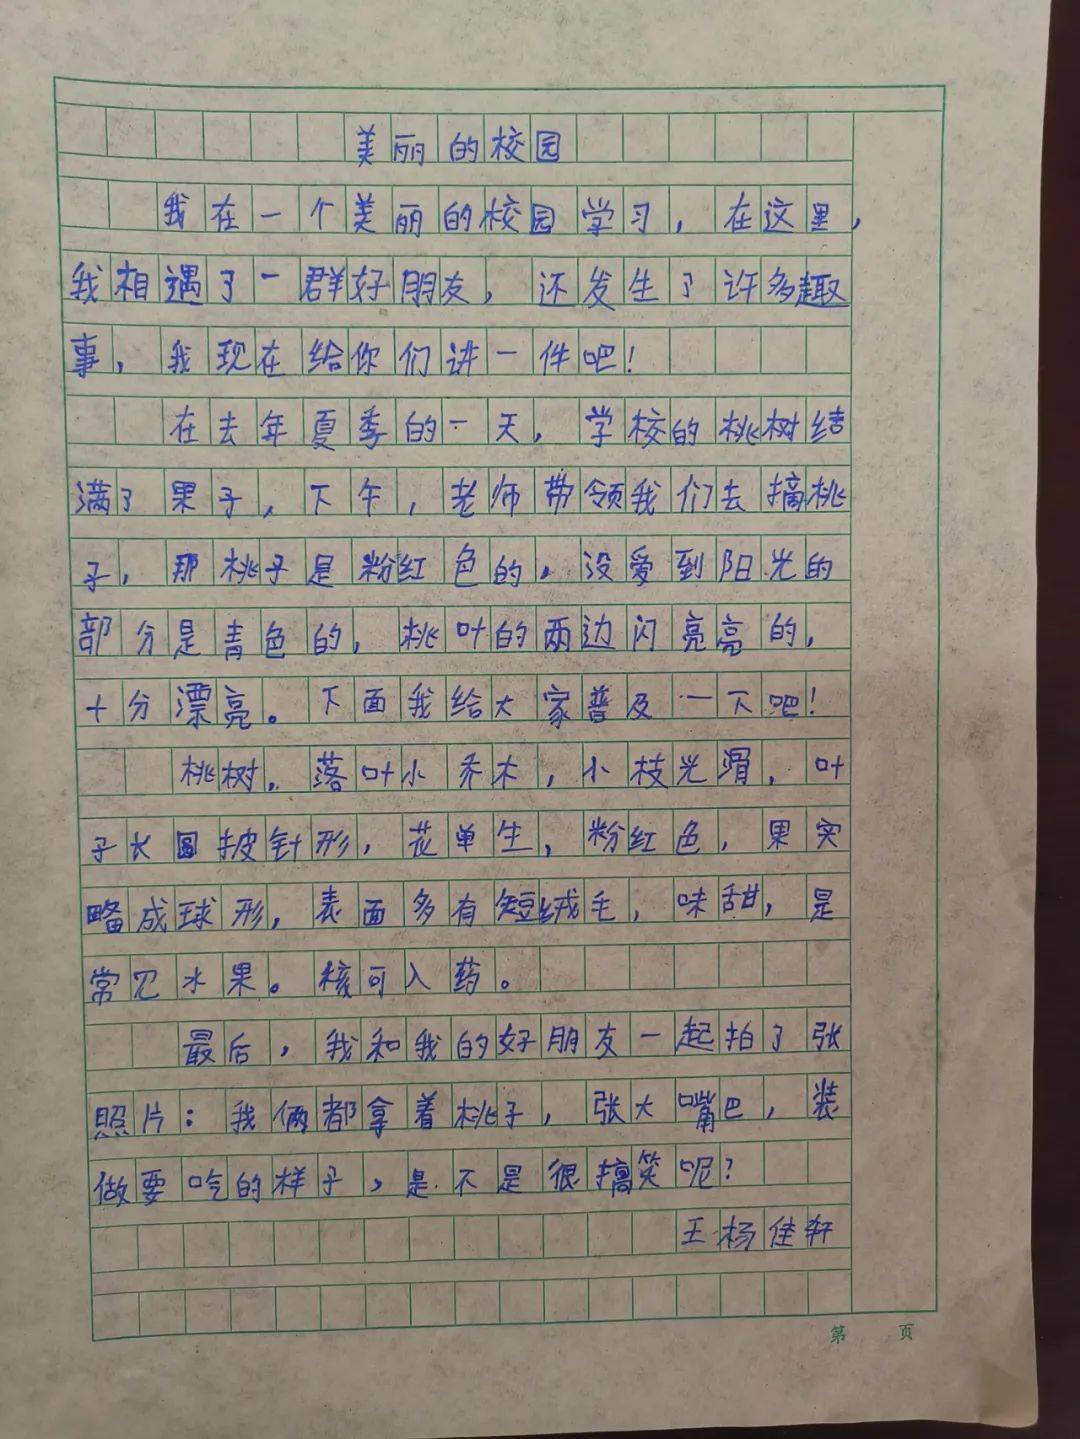 美丽的校园
我在一个美丽的校园学习，在这里，
我相遇了一群好朋友，还发生了许多趣
事，我现在给你们讲一件吧！
在去年夏季的一天，学校的桃树结
满了果子，下午，老师带领我们去摘桃
子，那桃子是粉红色的，没爱到阳光的
部分是青色的，桃叶的两边闪亮亮的，
十分漂亮。下面我给大家普及一下吧！
桃树，落叶小乔木，小枝光滑，叶
子长圆披针形，花单生，粉红色，果实
略成球形，表面多有短绒毛，味甜，是
常见水果。核可入药。
最后，我和我的好朋友一起拍了张
照片：我俩都拿着桃子，张大嘴巴，装
做要吃的样子，是不是很搞笑呢？
王杨佳轩
第 页